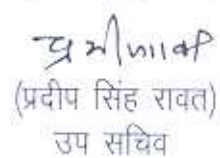 (प्रदीप सिंह रावत)
उप सचिव